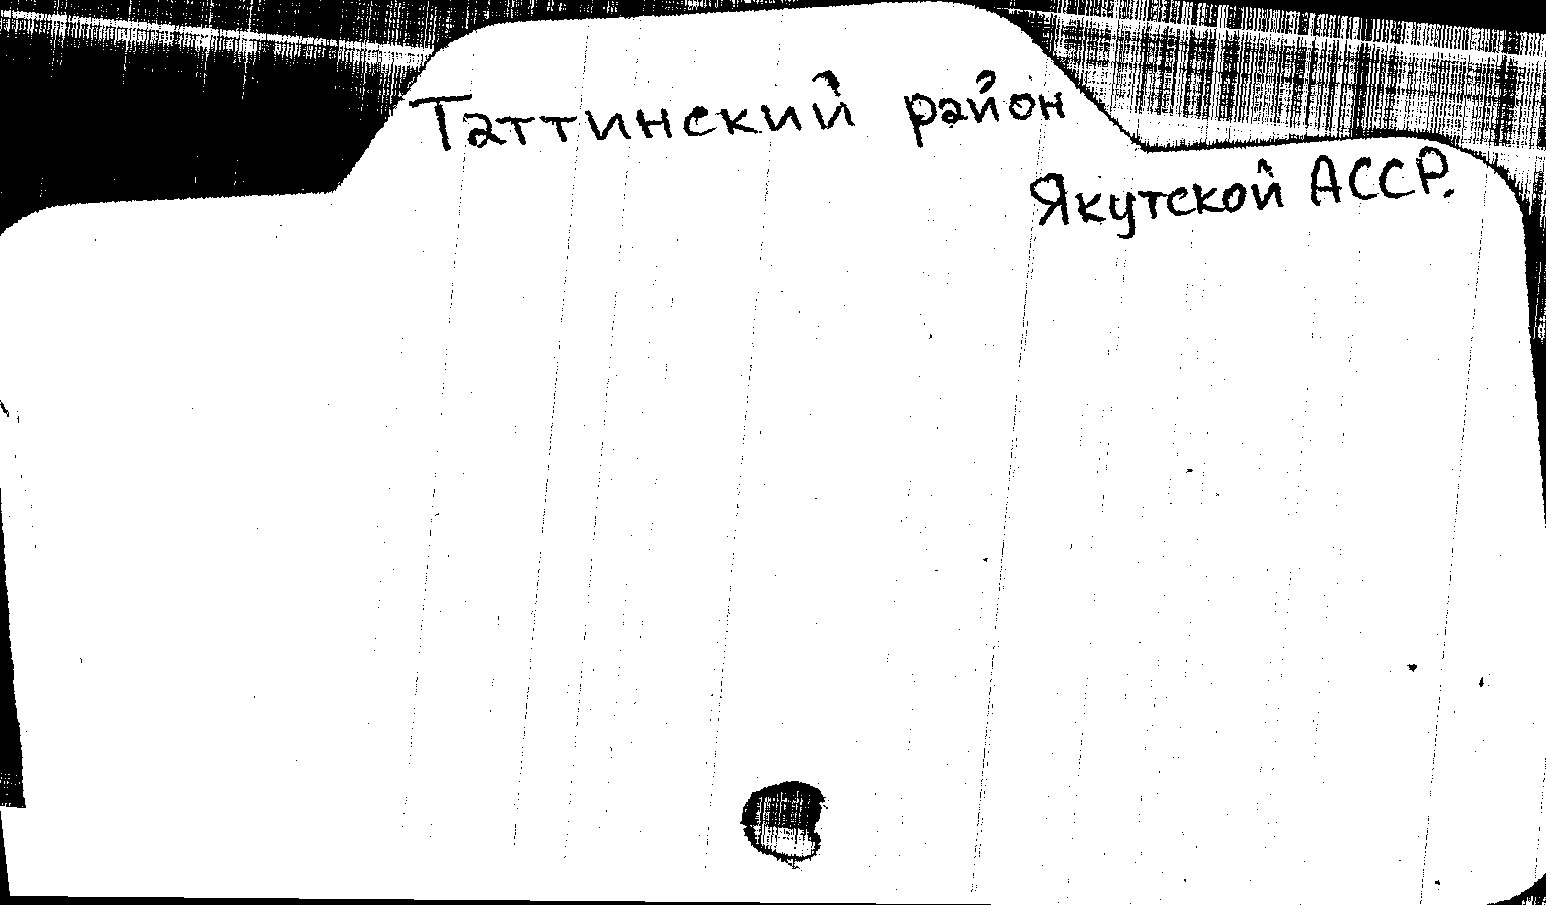 Таттинский район
Якутской АССР.